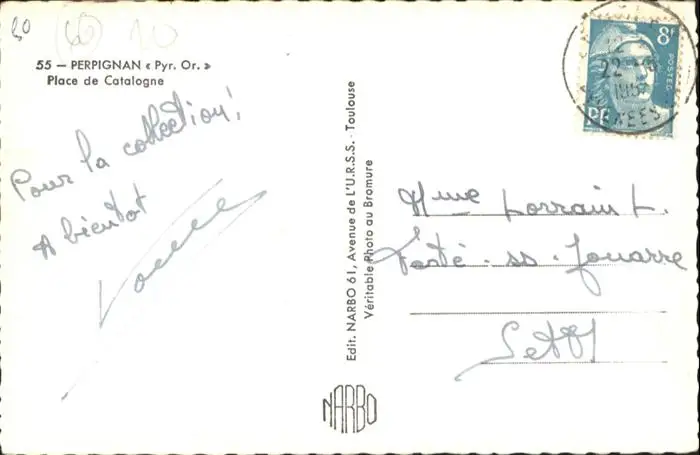 50
(60)
10
55 — PERPIGNAN « Pyr. Or. »
Place de Catalogne
Pour la collection!
A bientot
Edit. NARBO 61, Avenue de L'U.R.S.S. - Toulouse
Véritable Photo au Bromure
8F
POSTES
RF
22
Mme Lorrain P.
Ferté-ss-Jouarre
Set M
NARBO